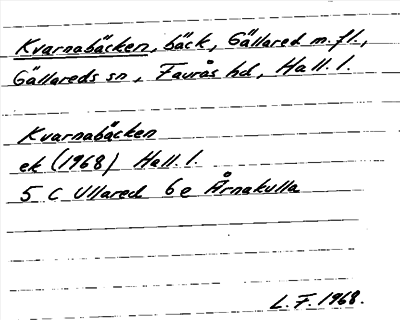 Kvarnabäcken, bäck, Gällared m.fl.,
Gällareds sn, Faurås hd, Hall. l.
Kvarnabäcken
ek (1968) Hall. l.
5 C Ullared 6e Årnakulla
L.F. 1968.